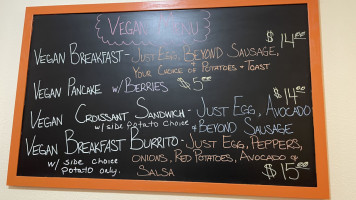 VEGAN MENU
$14.00
VEGAN BREAKFAST - JUST EGG, BEYOND SAUSAGE,
YOUR CHOICE OF POTATOES + TOAST
VEGAN PANCAKE w/BERRIES $5.00
$14.00
VEGAN CROISSANT SANDWICH - JUST EGG, AVOCADO
w/ side potato choice & BEYOND SAUSAGE
VEGAN BREAKFAST BURRITO - JUST EGG, PEPPERS,
w/ side choice ONIONS, RED POTATOES, AVOCADO &
potato only. SALSA $15.00